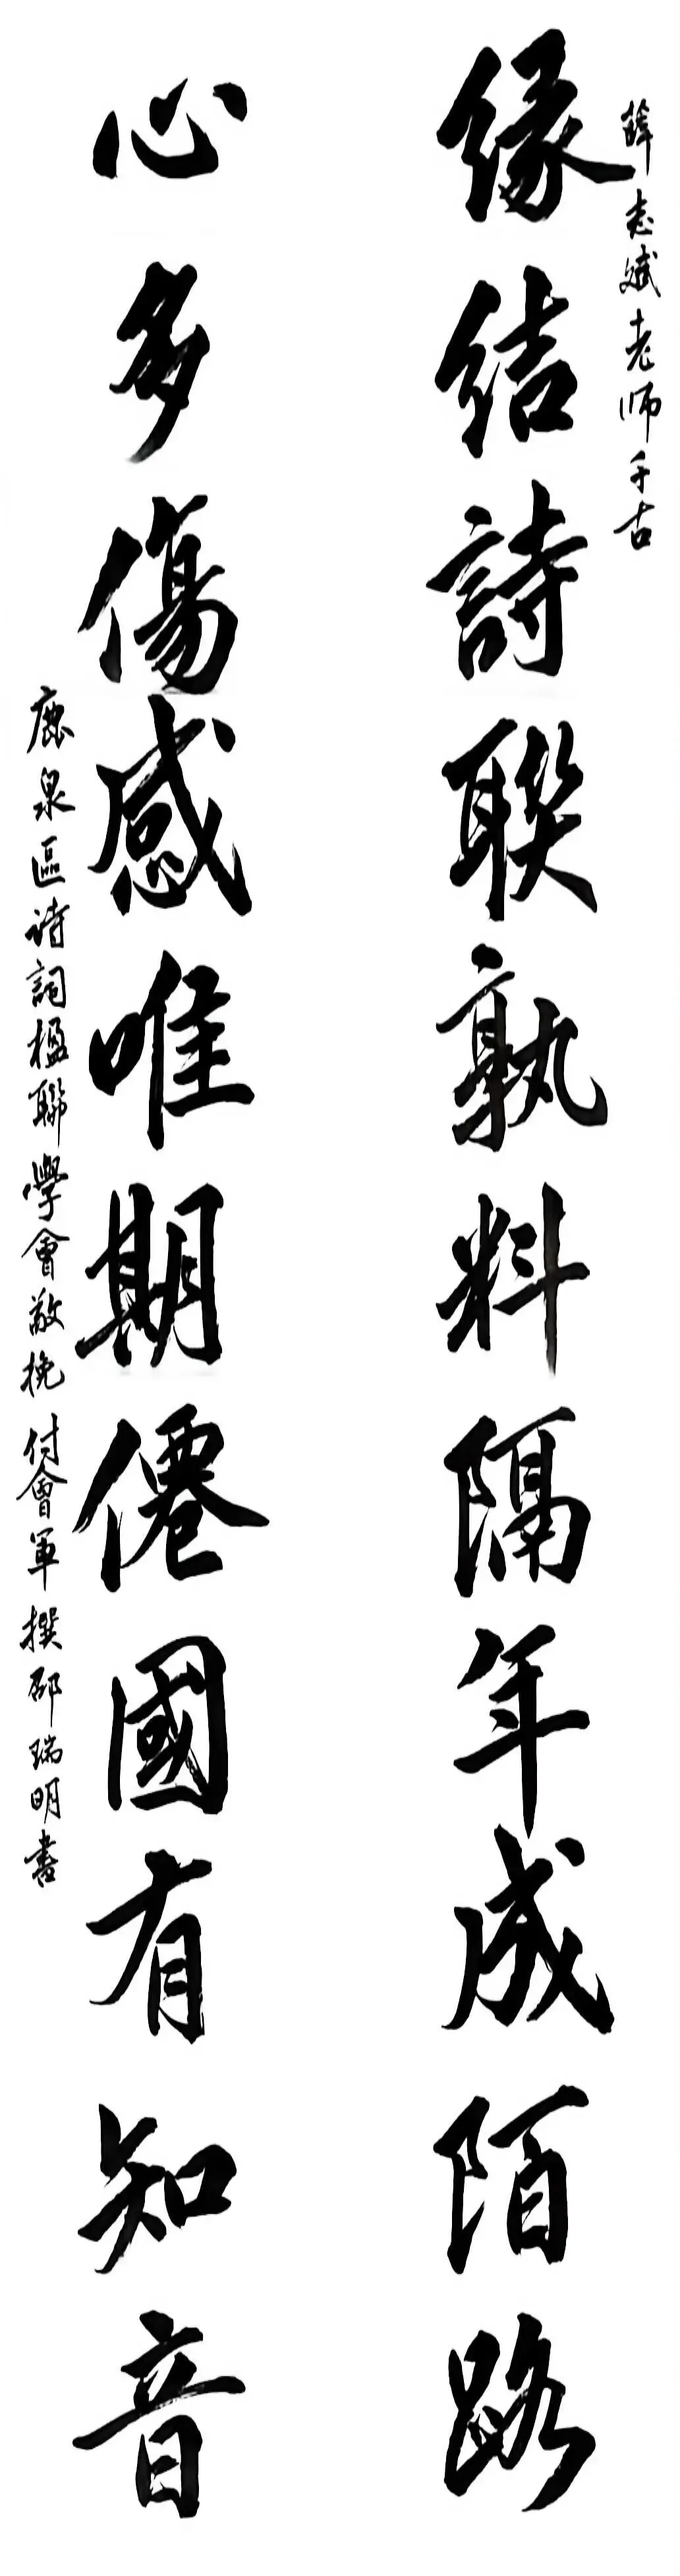 薛志斌老师千古
緣結詩聯孰料隔年成陌路
心多傷感唯期僊國有知音
鹿泉區诗詞楹聯學會敬挽 付會軍撰 邵瑞明書